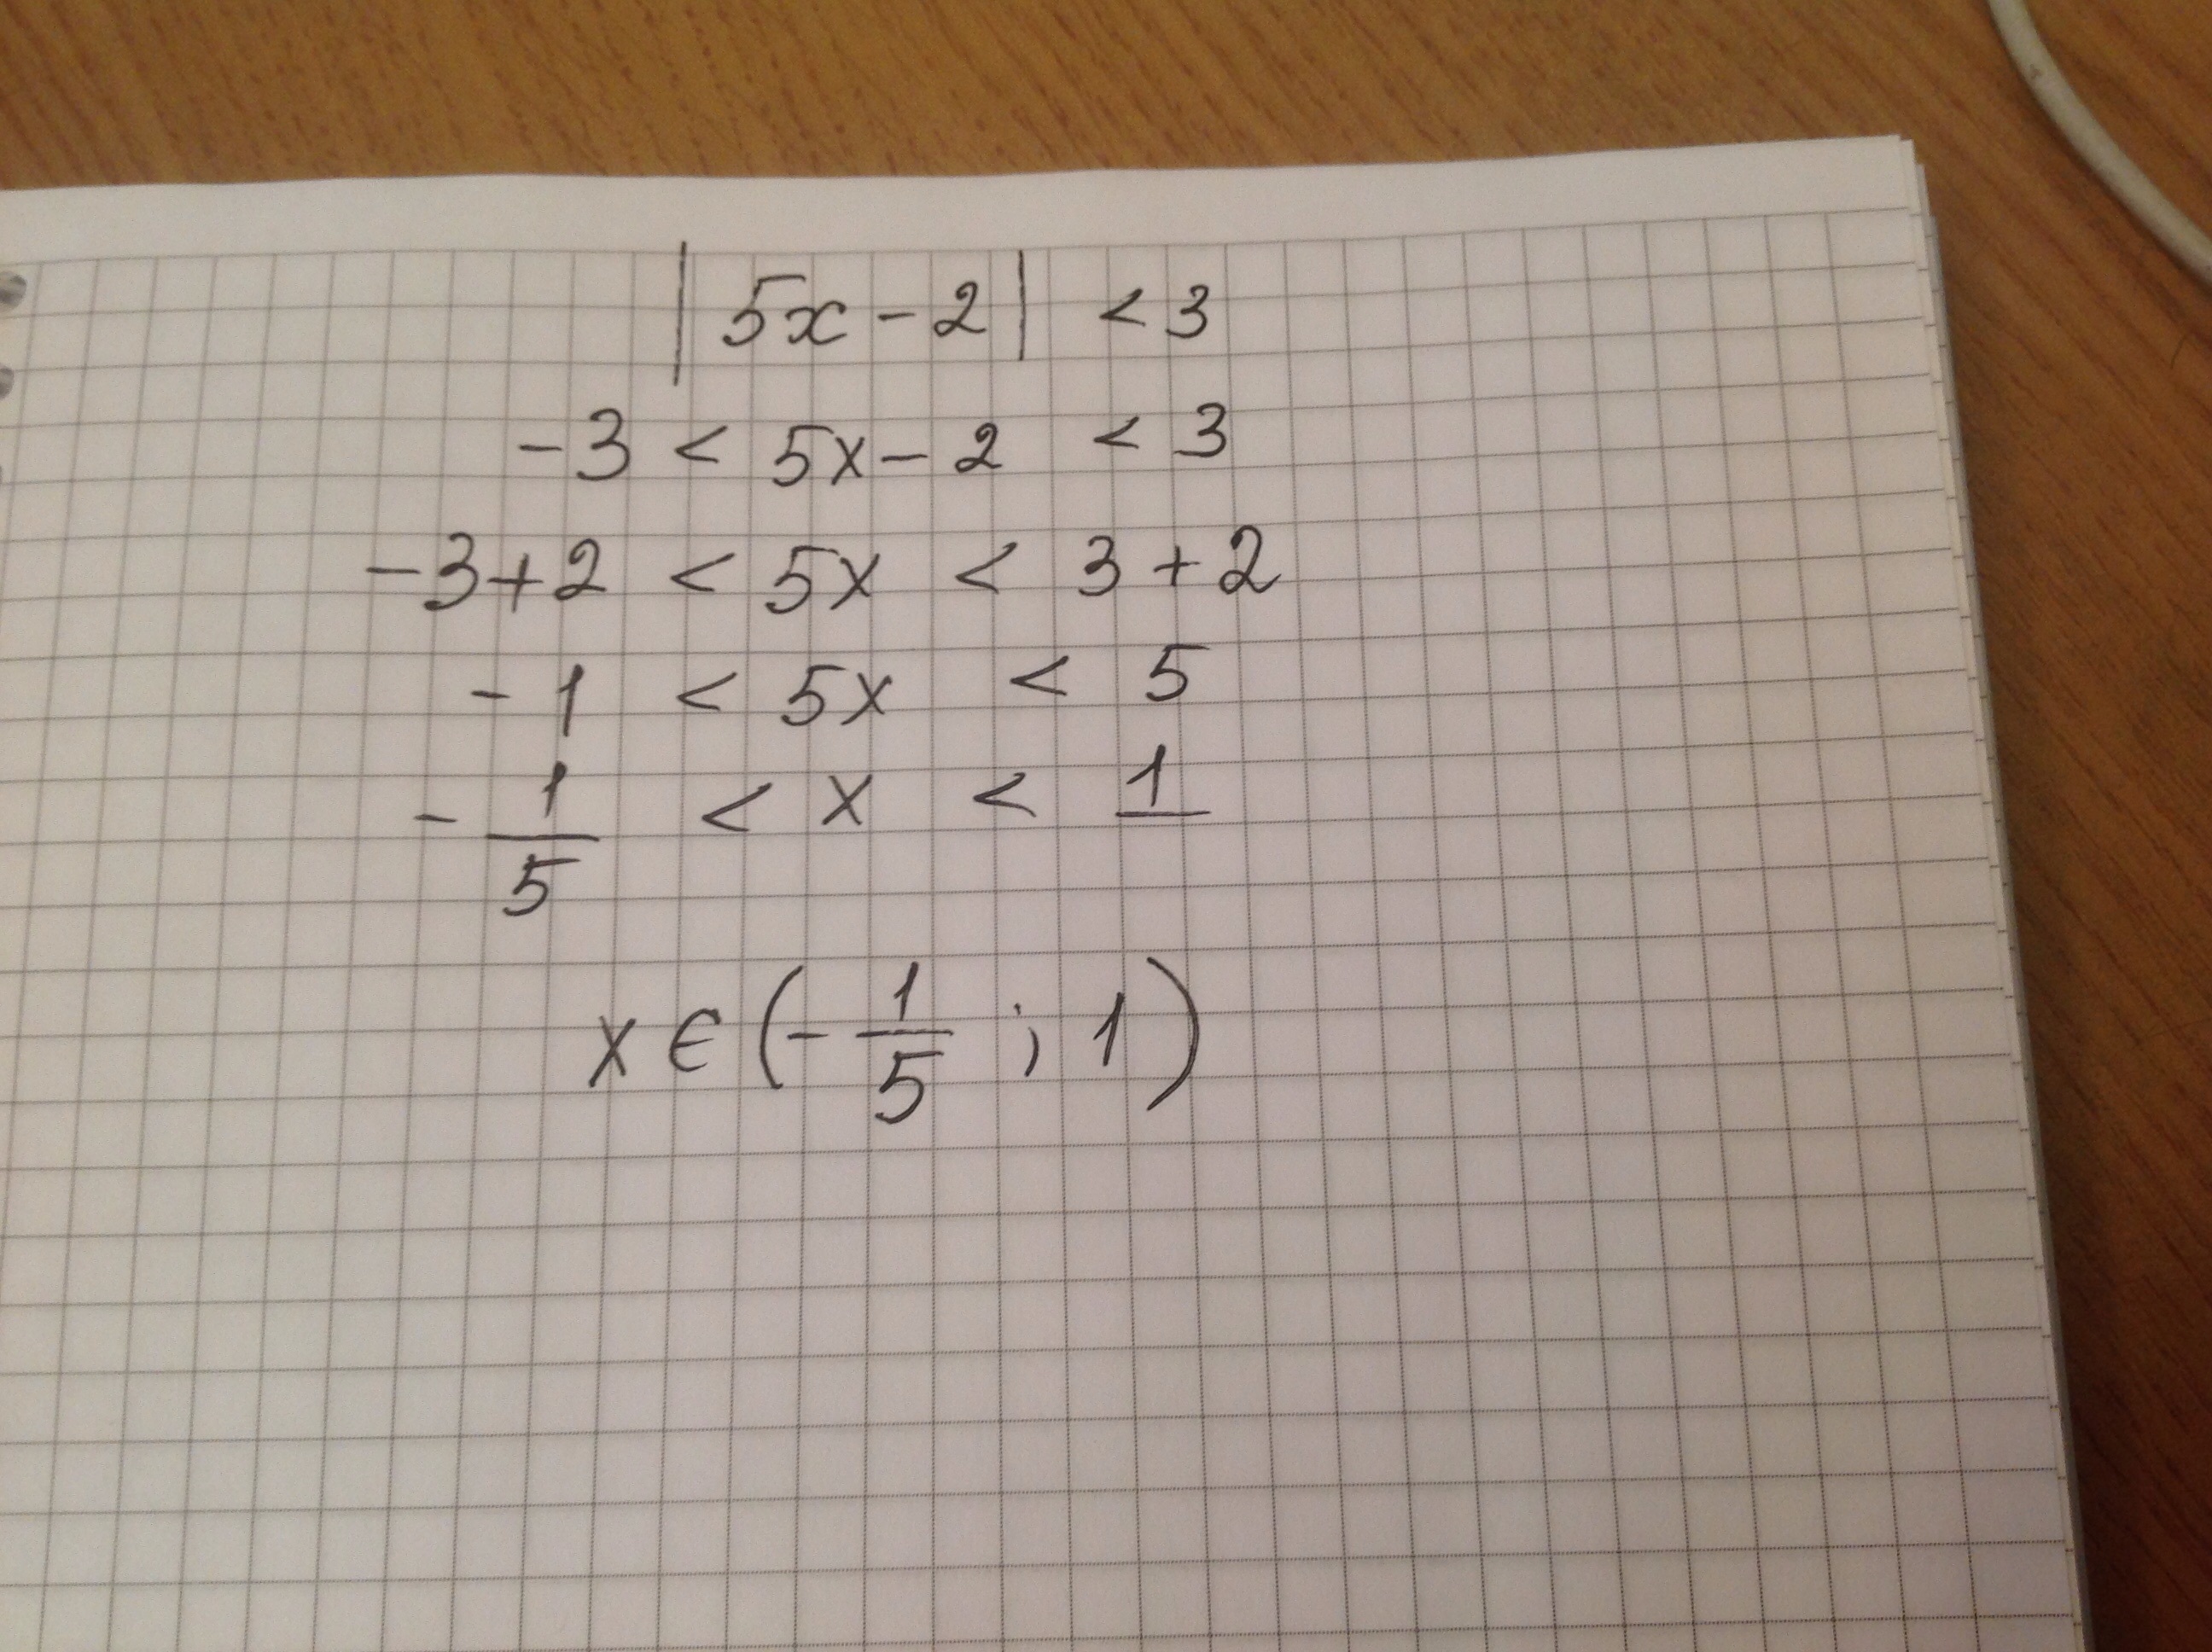 |5x - 2| < 3
-3 < 5x - 2 < 3
-3+2 < 5x < 3+2
-1 < 5x < 5
-1/5 < x < 1
x ∈ (-1/5 ; 1)